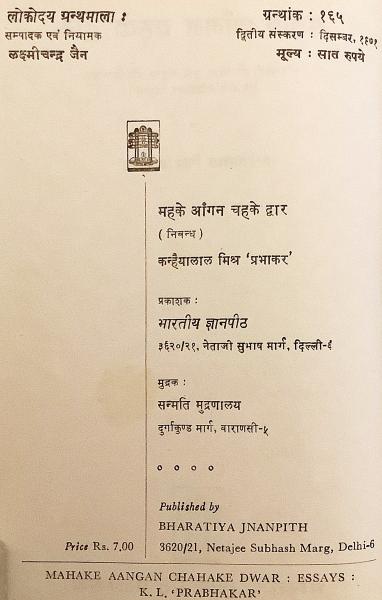 लोकोदय ग्रन्थमाला : ग्रन्थांक : १६५
सम्पादक एवं नियामक द्वितीय संस्करण : दिसम्बर, १९७१
लक्ष्मीचन्द्र जैन मूल्य : सात रुपये
महके आँगन चहके द्वार
( निबन्ध )
कन्हैयालाल मिश्र ‘प्रभाकर’
प्रकाशक :
भारतीय ज्ञानपीठ
३६२०/२१, नेताजी सुभाष मार्ग, दिल्ली-६
मुद्रक :
सन्मति मुद्रणालय
दुर्गाकुण्ड मार्ग, वाराणसी-५
० ० ० ०
Published by
BHARATIYA JNANPITH
Price Rs. 7,00 3620/21, Netajee Subhash Marg, Delhi-6
MAHAKE AANGAN CHAHAKE DWAR : ESSAYS :
K. L. ‘PRABHAKAR’